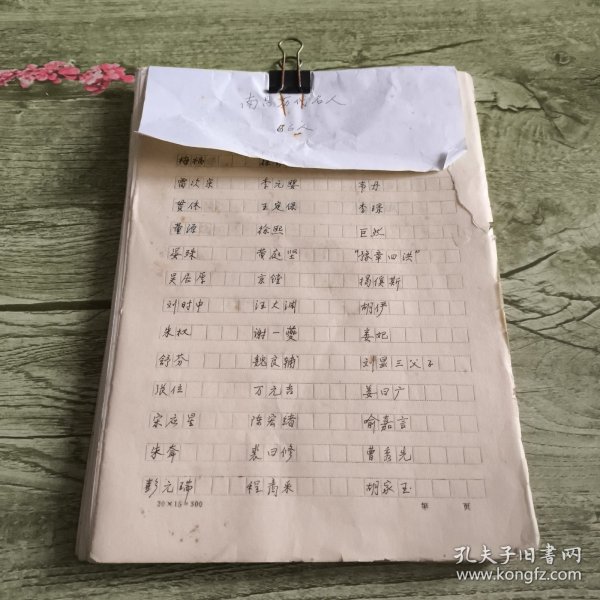 南昌古代名人
86人
梅福 徐
雷次宗 李元婴 韦丹
贯休 王定保 李璟
董源 徐熙 巨然
晏殊 黄庭坚 "豫章四洪"
吴居厚 京镗 揭傒斯
刘时中 汪大渊 胡俨
朱权 谢一夔 娄妃
舒芬 魏良辅 刘显三父子
张位 万元吉 姜曰广
宋应星 陈宏绪 喻嘉言
朱耷 裘曰修 曹秀先
彭元瑞 程矞采 胡家玉
20×15=300 第 页
孔夫子旧书网
www.kongfz.com